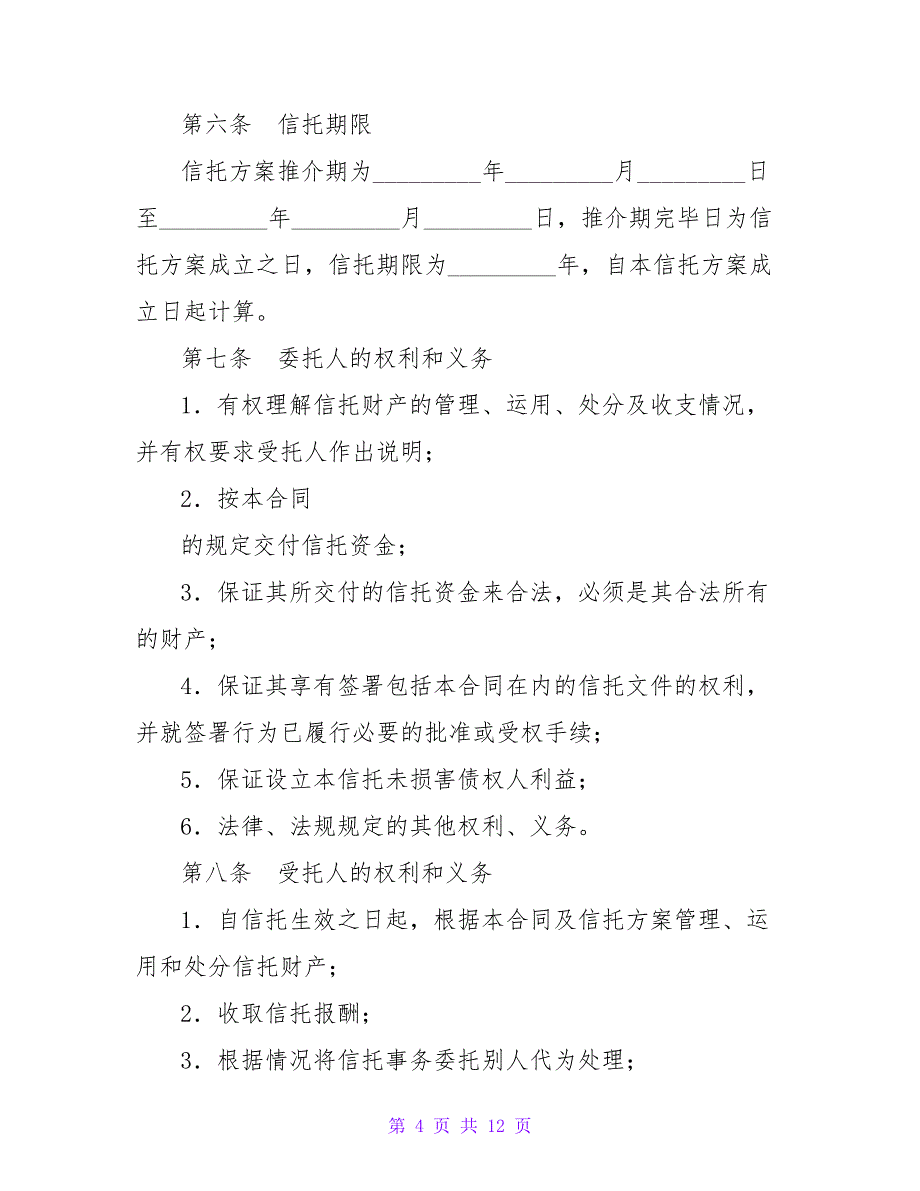 第六条　信托期限
信托方案推介期为_________年_________月_________日
至_________年_________月_________日，推介期完毕日为信
托方案成立之日，信托期限为_________年，自本信托方案成
立日起计算。
第七条　委托人的权利和义务
1．有权理解信托财产的管理、运用、处分及收支情况，
并有权要求受托人作出说明；
2．按本合同
的规定交付信托资金；
3．保证其所交付的信托资金来合法，必须是其合法所有
的财产；
4．保证其享有签署包括本合同在内的信托文件的权利，
并就签署行为已履行必要的批准或受权手续；
5．保证设立本信托未损害债权人利益；
6．法律、法规规定的其他权利、义务。
第八条　受托人的权利和义务
1．自信托生效之日起，根据本合同及信托方案管理、运
用和处分信托财产；
2．收取信托报酬；
3．根据情况将信托事务委托别人代为处理；
第 4 页 共 12 页